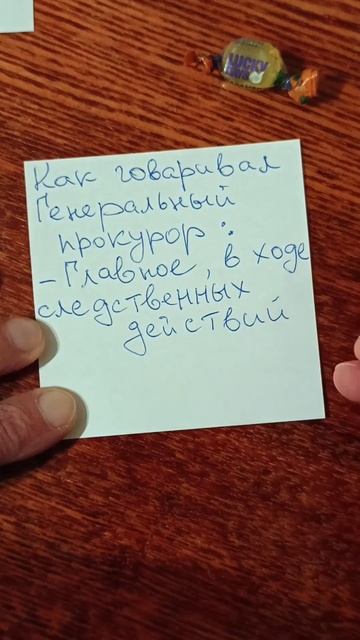 LUCKY
Как говаривал
Генеральный
прокурор:
- Главное, в ходе
следственных
действий